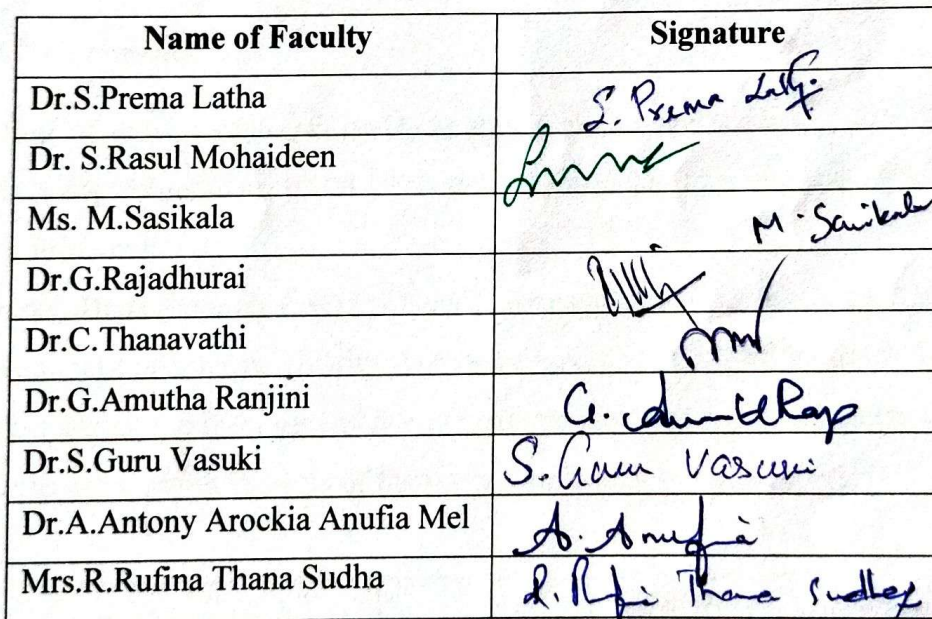 Name of Faculty Signature
Dr.S.Prema Latha S. Prema Latha
Dr. S.Rasul Mohaideen
Ms. M.Sasikala M. Sasikala
Dr.G.Rajadhurai
Dr.C.Thanavathi
Dr.G.Amutha Ranjini
Dr.S.Guru Vasuki S. Guru Vasuki
Dr.A.Antony Arockia Anufia Mel A. Anufia
Mrs.R.Rufina Thana Sudha R. Rufi Thana Sudha